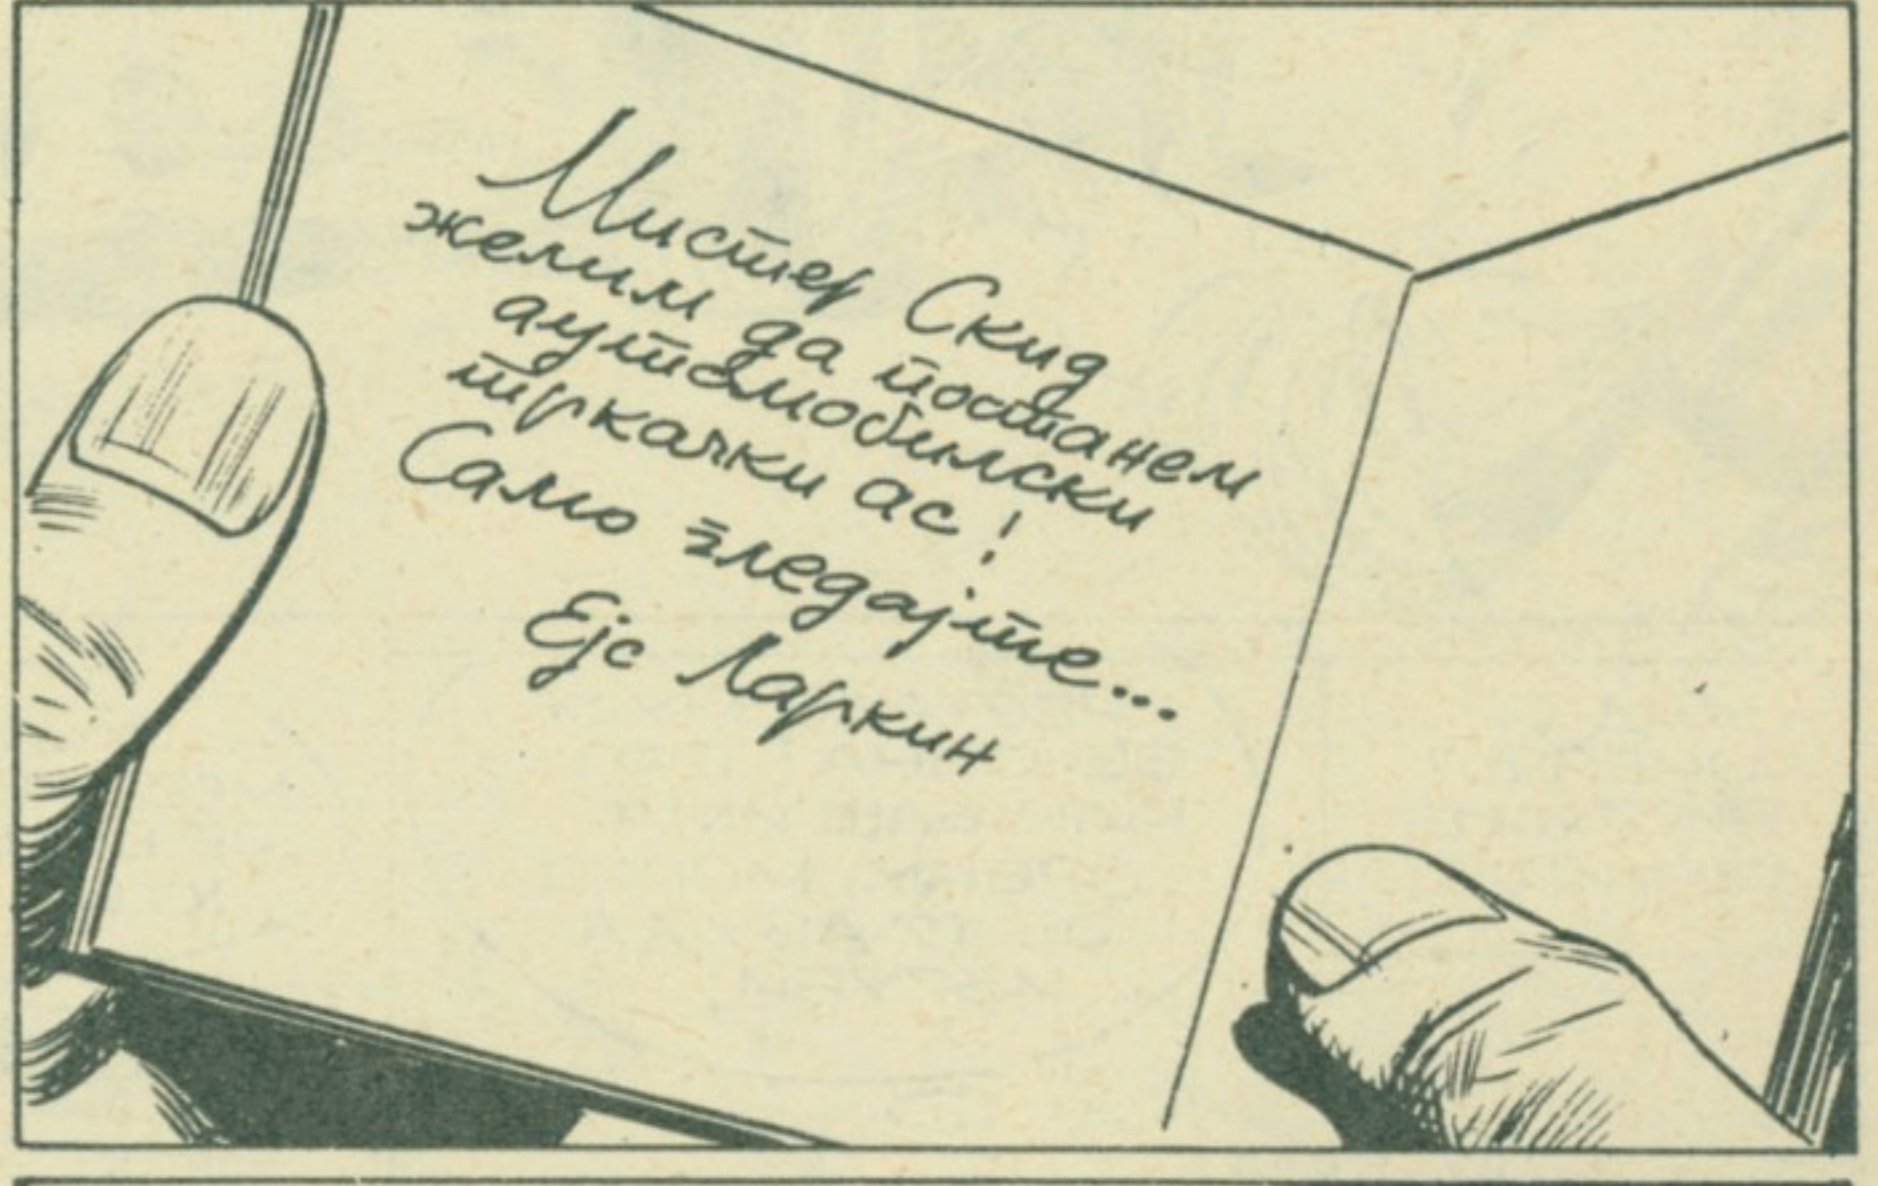 Мистер Скид
желим да постанем
аутомобилски
тркачки ас!
Само гледајте...
Ејс Ларкин